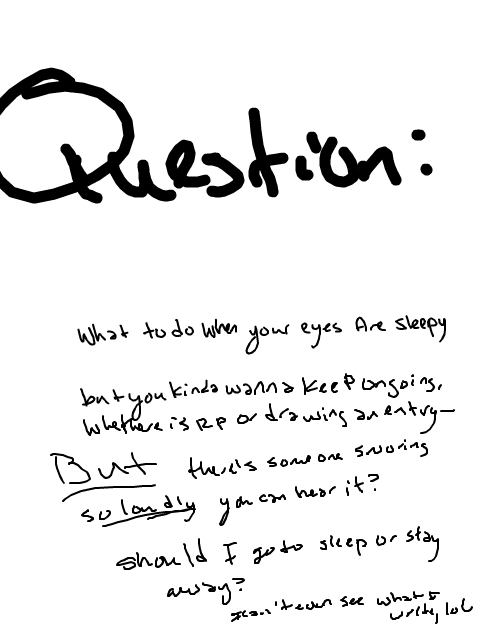 Question:
What to do when your eyes Are sleepy
but you kinda wanna keep ongoing,
whether is RP or drawing an entry—
But there's someone snoring
so loudly you can hear it?
should I go to sleep or stay
away?
I can't even see what I
write, lol